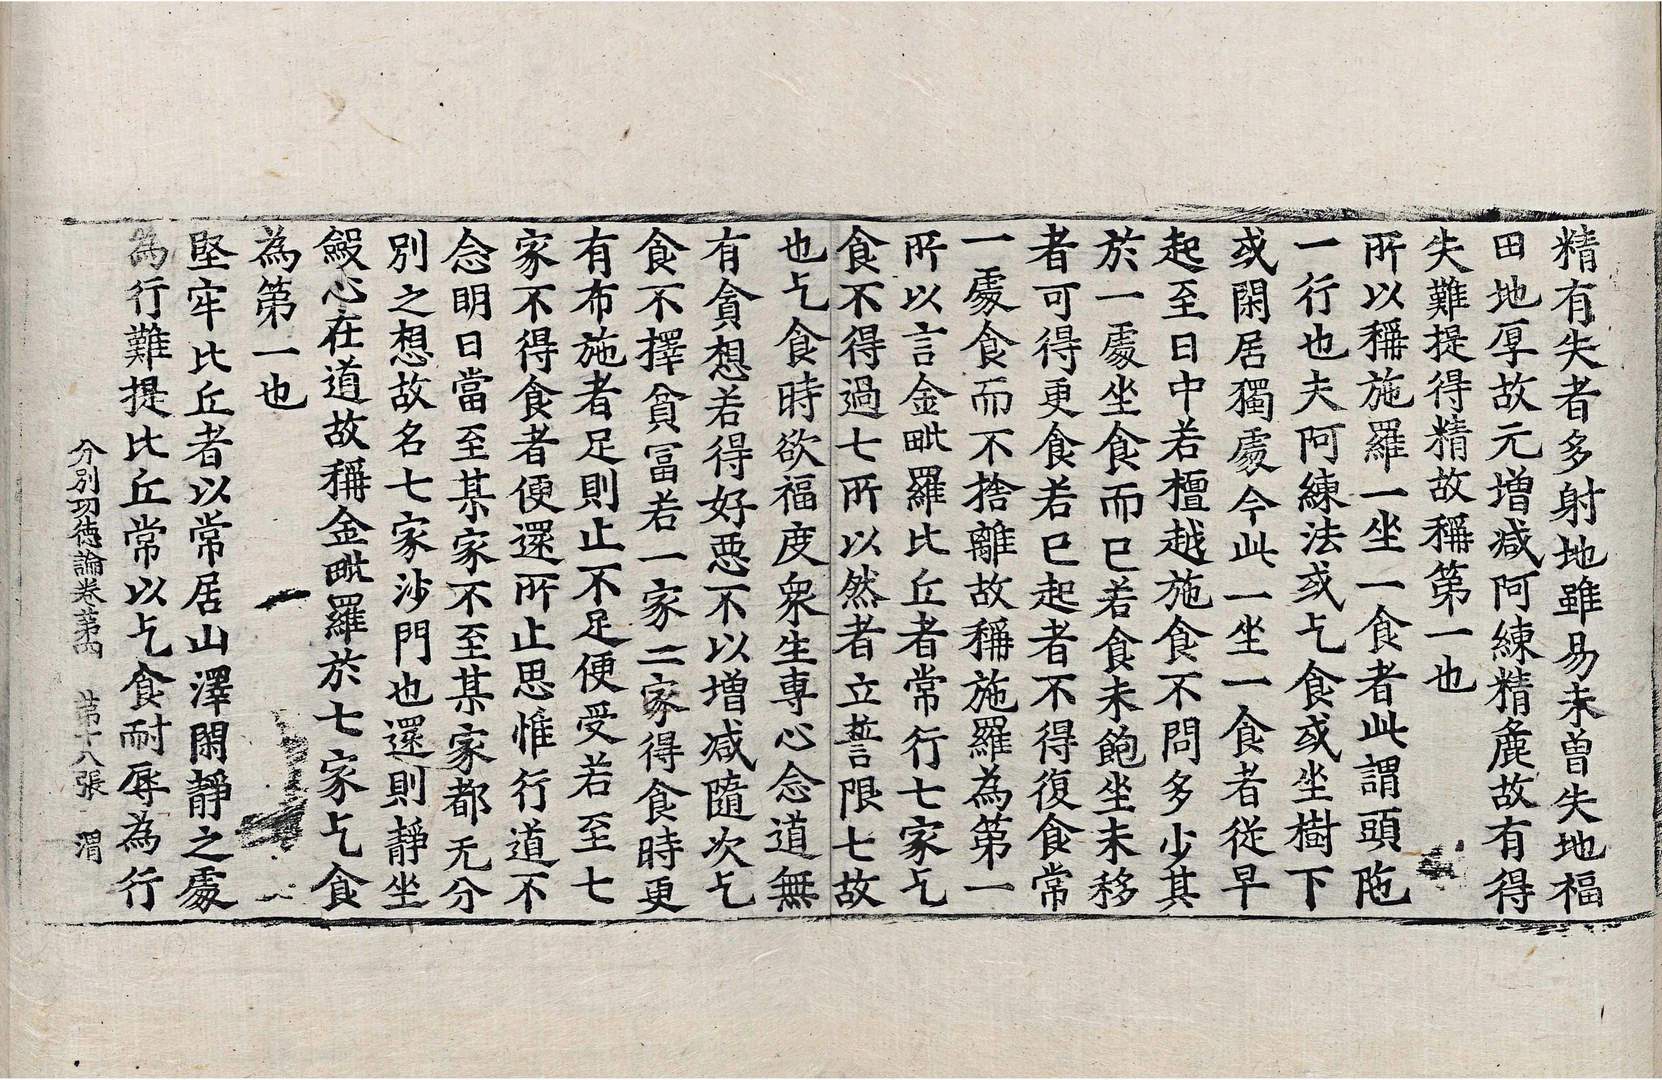 精有失者多射地雖易未曽失地福
田地厚故无增減阿練精麁故有得
失難提得精故稱第一也
所以稱施羅一坐一食者此謂頭陁
一行也夫阿練法或乞食或坐樹下
或閑居獨處今此一坐一食者從早
起至日中若檀越施食不問多少其
於一處坐食而已若食未飽坐未移
者可得更食若已起者不得復食常
一處食而不捨離故稱施羅為第一
所以言金毗羅比丘者常行七家乞
食不得過七所以然者立誓限七故
也乞食時欲福度衆生專心念道無
有貪想若得好惡不以增減隨次乞
食不擇貧冨若一家二家得食時更
有布施者足則止不足便受若至七
家不得食者便還所止思惟行道不
念明日當至某家不至某家都无分
別之想故名七家沙門也還則靜坐
斂心在道故稱金毗羅於七家乞食
為第一也
堅牢比丘者以常居山澤閑靜之處
為行難提比丘常以乞食耐辱為行
分別功德論卷第四 第十八張 渭